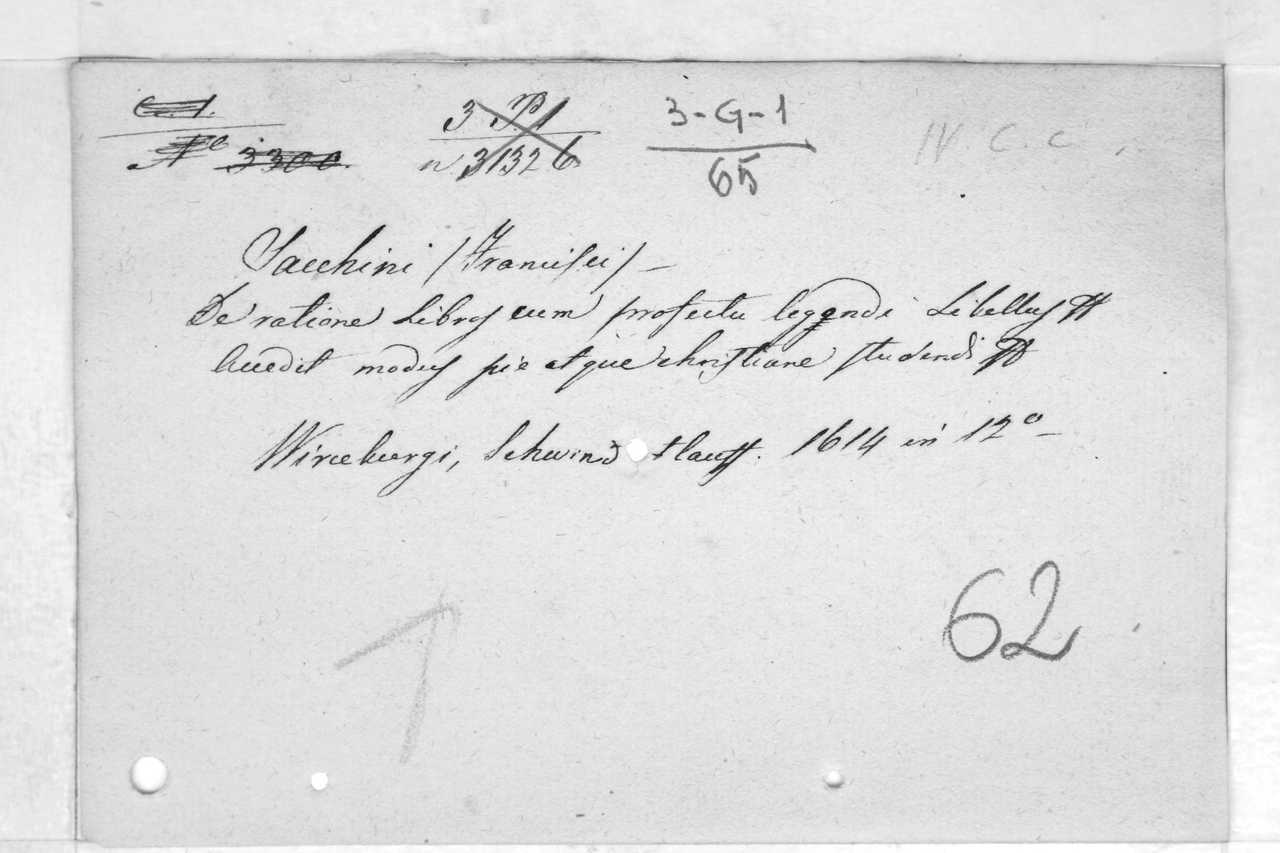 C. 1. 3 P. 1 3-G-1 IV C. C
Nº 3300. n 3132 6 65
Sacchini (Francisci) –
De ratione Libros cum profectu legendi Libellus //
Accedit modus pie atque christiane studendi //
Wirceburgi, Schwindtlauff. 1614 in 12º –
62
1